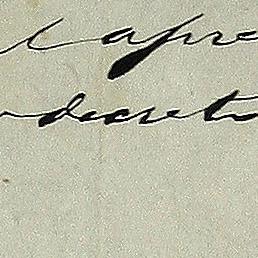 l apre
decreto